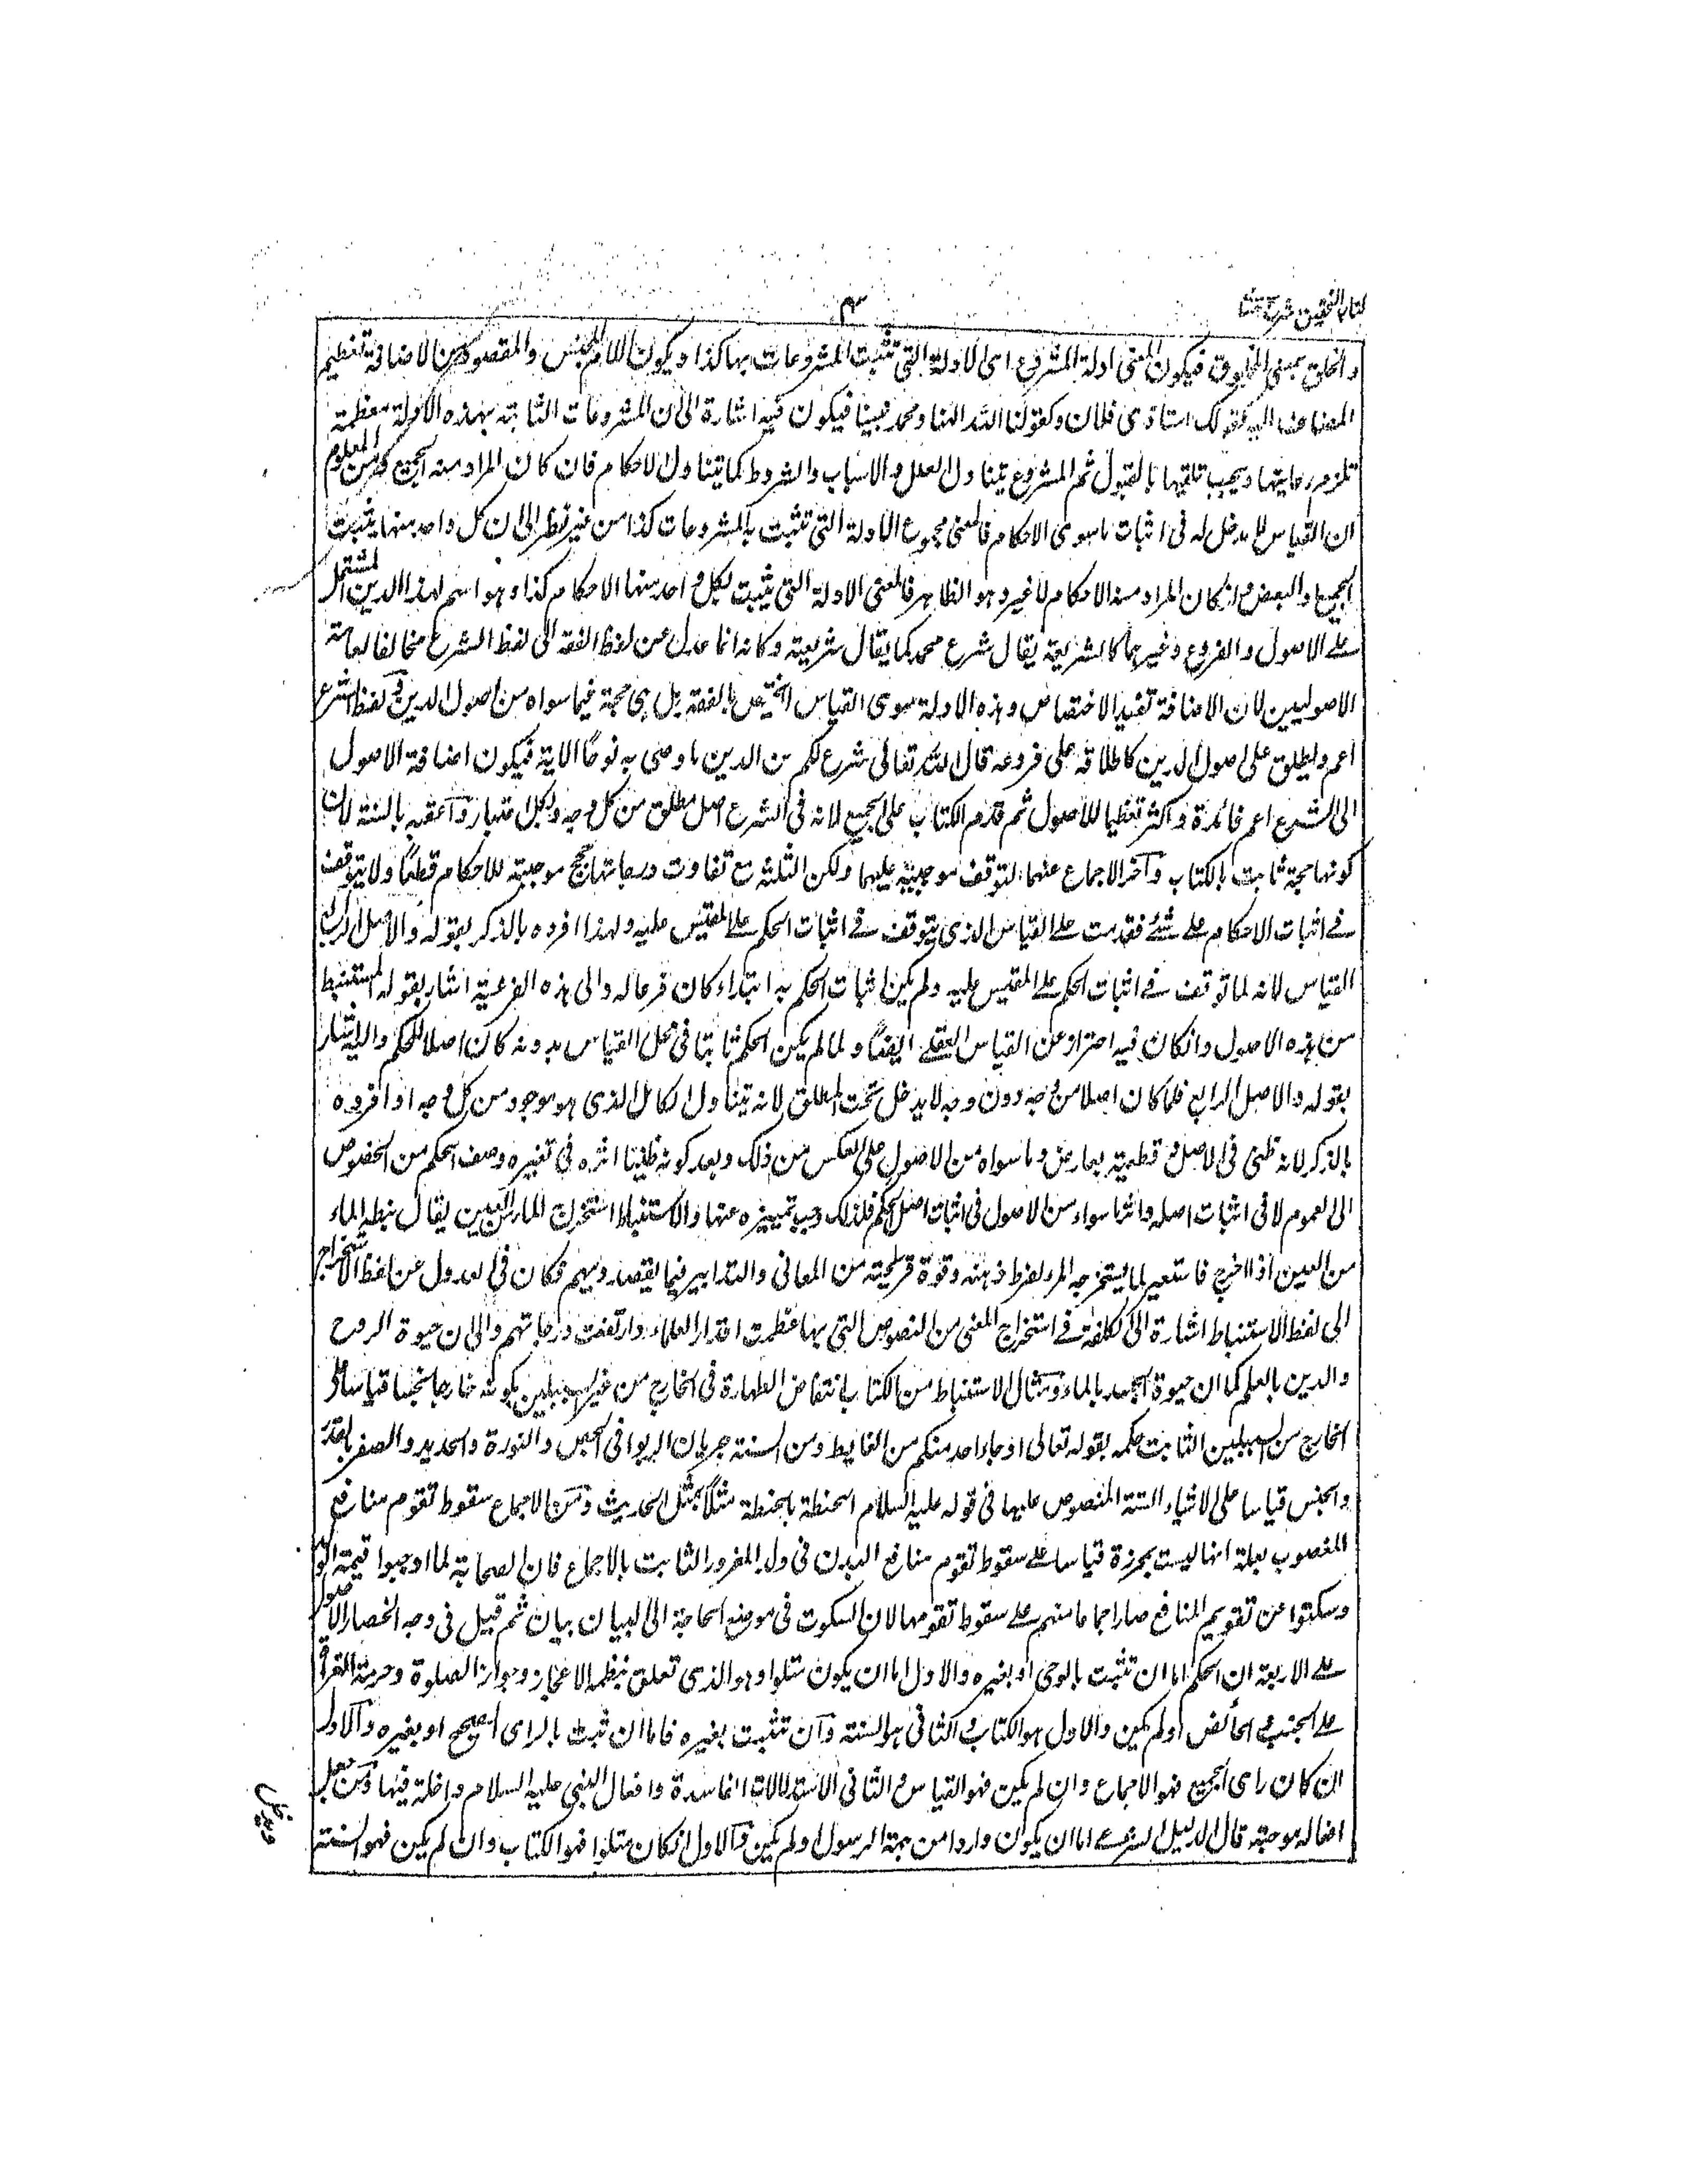 كتاب التحقيق شرح
٣
والخلق بمعنى المخلوق فيكون المعنى ادلة المشروع اى الادلة التى تثبت المشروعات بها كذا ويكون اللام للجنس والمقصود من الاضافة تعظيم
المضاف اليه كقولك استاذى فلان وكقولنا الله الهنا ومحمد نبينا فيكون فيه اشارة الى ان المشروعات الثابتة بهذه الادلة معظمة
تلزم رعايتها ويجب تلقيها بالقبول ثم المشروع يتناول العلل والاسباب والشروط كما يتناول الاحكام فان كان المراد منه الجميع ومن المعلوم
ان القياس لا مدخل له فى اثبات ما سوى الاحكام فالمعنى مجموع الادلة التى تثبت بها المشروعات كذا من غير نظر الى ان كل واحد منها يثبت
الجميع او البعض وان كان المراد منه الاحكام لا غير وهو الظاهر فالمعنى الادلة التى يثبت بكل واحد منها الاحكام كذا وهو اسم لهذا الدين المشتمل
على الاصول والفروع وغيرهما كالشريعة يقال شرع محمد كما يقال شريعته وكانه انما عدل عن لفظ الفقه الى لفظ الشرع مخالفا لعامة
الاصوليين لان الاضافة تفيد الاختصاص وهذه الادلة سوى القياس لا تختص بالفقه بل هى حجة فيما سواه من اصول الدين ولفظ الشرع
اعم ويطلق على اصول الدين كاطلاقه على فروعه قال الله تعالى شرع لكم من الدين ما وصى به نوحا الاية فيكون اضافة الاصول
الى الشرع اعم فائدة واكثر تعظيما للاصول ثم قدم الكتاب على الجميع لانه فى الشرع اصل مطلق من كل وجه وبكل اعتبار واعقبه بالسنة لان
كونها حجة ثابت بالكتاب واخر الاجماع عنهما لتوقف موجبيته عليهما ولكن الثلثة مع تفاوت درجاتها حجج موجبة للاحكام قطعا ولا يتوقف
فى اثبات الاحكام على شئ فقدمت على القياس الذى يتوقف فى اثبات الحكم على المقيس عليه ولهذا افرده بالذكر بقوله والاصل الرابع
القياس لانه لما توقف فى اثبات الحكم على المقيس عليه ولم يكن اثبات الحكم به ابتداء كان فرعا له والى هذه الفرعية اشار بقوله المستنبط
من هذه الاصول وان كان فيه احتراز عن القياس العقلى ايضا ولما لم يكن الحكم ثابتا فى محل القياس بدونه كان اصلا للحكم واليه اشار
بقوله والاصل الرابع فلما كان اصلا من وجه دون وجه لا يدخل تحت المطلق لانه يتناول الكامل الذى هو موجود من كل وجه او افرده
بالذكر لانه ظنى فى الاصل وقطعيته بعارض وما سواه من الاصول على العكس من ذلك وبعد كونه ظنيا اثره فى تغيير وصف الحكم من الخصوص
الى العموم لا فى اثبات اصله واثر ما سواه من الاصول فى اثبات اصل الحكم فلذلك وجب تمييزه عنها والاستنباط استخراج الماء من العين يقال نبط الماء
من العين اذا خرج فاستعير لما يستخرجه المرء بفرط ذهنه وقوة قريحته من المعانى والتدابير فيما يقصد ويهم فكان فى العدول عن لفظ الاستخراج
الى لفظ الاستنباط اشارة الى الكلفة فى استخراج المعنى من النصوص التى بها عظمت اقدار العلماء وارتفعت درجاتهم والى ان حيوة الروح
والدين بالعلم كما ان حيوة الجسد بالماء ومثال الاستنباط من الكتاب انتقاض الطهارة فى الخارج من غير السبيلين بكونه خارجا نجسا قياسا على
الخارج من السبيلين الثابت حكمه بقوله تعالى او جاء احد منكم من الغايط ومن السنة جريان الربوا فى الجص والنورة والحديد والصفر بالقدر
والجنس قياسا على الاشياء الستة المنصوص عليها فى قوله عليه السلام الحنطة بالحنطة مثلا بمثل الحديث ومن الاجماع سقوط تقوم منافع
المغصوب بعلة انها ليست بمحرزة قياسا على سقوط تقوم منافع البدن فى ولد المغرور الثابت بالاجماع فان الصحابة لما اوجبوا قيمة الولد
وسكتوا عن تقويم المنافع صار اجماعا منهم على سقوط تقومها لان السكوت فى موضع الحاجة الى البيان بيان ثم قيل فى وجه انحصار الاصول
على الاربعة ان الحكم اما ان تثبت بالوحى او بغيره والاول اما ان يكون متلوا وهو الذى تعلق بنظمه الاعجاز وجواز الصلوة وحرمة القراءة
على الجنب والحائض او لم يكن والاول هو الكتاب والثانى هو السنة وان تثبت بغيره فاما ان ثبت بالراى الصحيح او بغيره والاول
ان كان راى الجميع فهو الاجماع وان لم يكن فهو القياس والثانى الاستدلالات الفاسدة وافعال النبى عليه السلام داخلة فيها ومن جعل
افعاله موجبة قال الدليل الشرعى اما ان يكون واردا من جهة الرسول او لم يكن والاول ان كان متلوا فهو الكتاب وان لم يكن فهو السنة
ويدخل